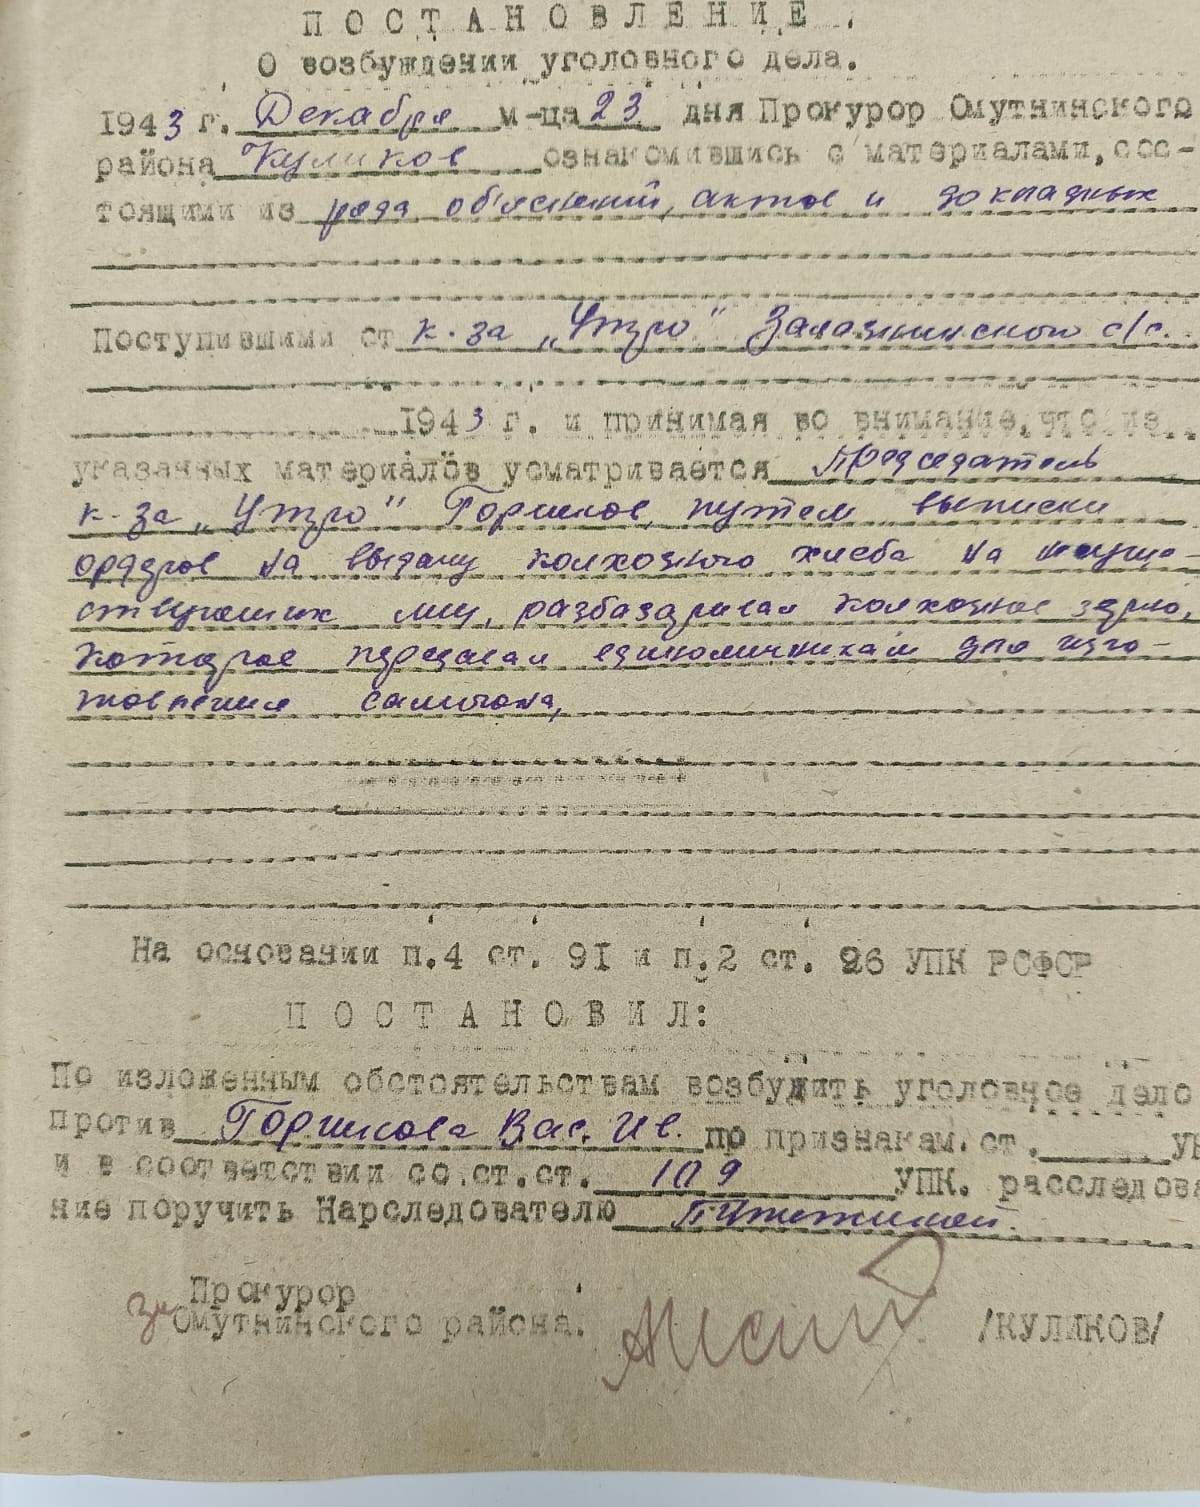 ПОСТАНОВЛЕНИЕ.
О возбуждении уголовного дела.
1943 г. Декабря м-ца 23 дня Прокурор Омутнинского
района Куликов ознакомившись с материалами, сос-
тоящими из ряда объяснений, актов и докладных
Поступившими от к-за „Утро" Залазнинского с/с.
1943 г. и принимая во внимание, что из
указанных материалов усматривается Председатель
к-за „Утро" Горшков, путем выписки
ордеров на выдачу колхозного хлеба на
лиц, разбазаривал колхозное зерно,
которое передавал единоличникам для изго-
товления самогона,
На основании п.4 ст. 91 и п.2 ст. 96 УПК РСФСР
ПОСТАНОВИЛ:
По изложенным обстоятельствам возбудить уголовное дело
против Горшкова Вас. Ив. по признакам. ст. УК
и в соответствии со.ст.ст. 109 УПК. расследова
ние поручить Нарследователю
Прокурор
Омутнинского района. /КУЛИКОВ/